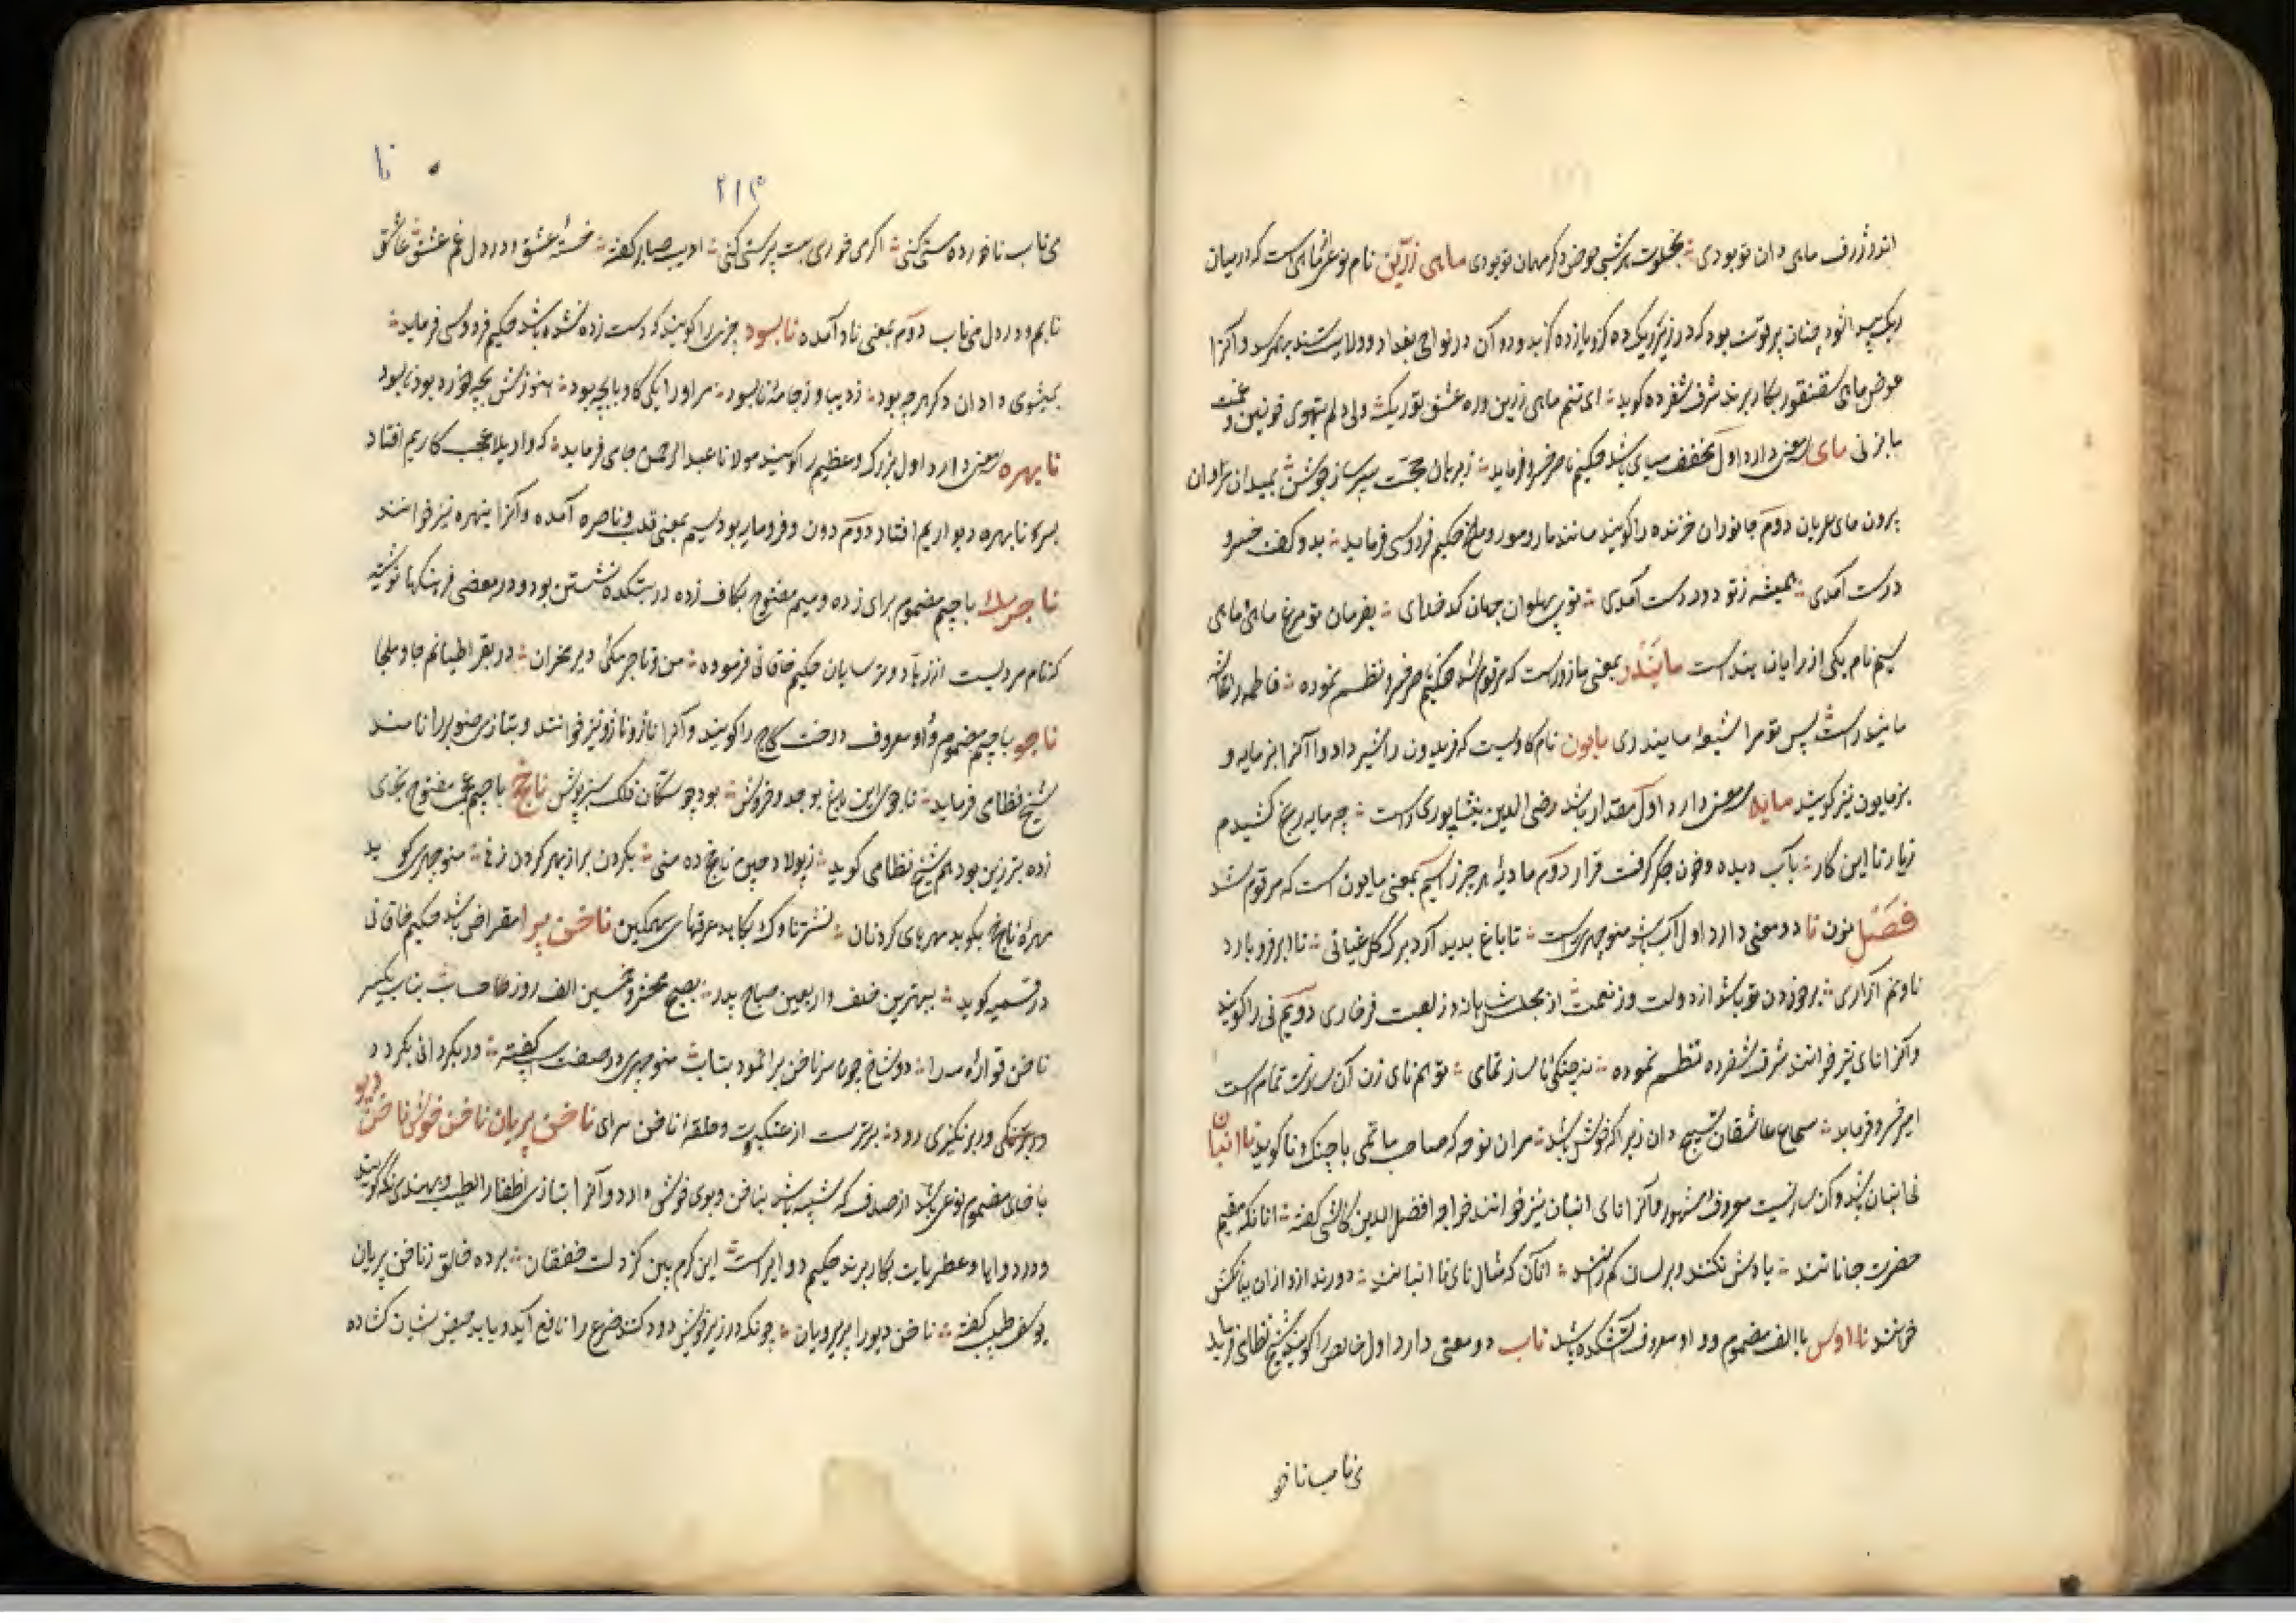 اندر ژرف ماهی دان تو بودی بخلوت هر شبی حوض دگر مهمان تو بودی ماهی زرین نام نوعی از ماهی است که در میان
ریک پیدا شود چنان پر قوت بود که در زیر ریک ده کز و یازده کز بدود و آن در نواحی بغداد و ولایت سند بهم رسد و آنرا
عوض ماهی سقنقور بکار برند شرف شفرده گوید ای تنم ماهی زرین و ره عشق تو ریک ولی دلم بتهوی
ما بزنی مای سه معنی دارد اول مخفف میای باشد حکیم ناصر خسرو فرماید ز برهان و حجت سپر ساز و جوشن بمیدان مردان
برون مای عریان دوم جانوران خزنده را گویند مانند مار و مور و ملخ حکیم فردوسی فرماید بدو گفت خسرو
درست آمدی همیشه ز تو دور دست آمدی توی پهلوان جهان کدخدای بفرمان تو مرغ ماهی و مای
سیم نام یکی از رایان هند است مایندر بمعنی مادندر است که مرقوم شد حکیم ناصر خسرو نظم نموده فاطمه را عایشه
مایندر است پس تو مرا شیعۀ مایندری مایون نام گاویست که فریدون را شیر داد و آنرا بزمایه و
بزمایون نیز گویند مایه سه معنی دارد اول مقدار باشد رضی الدین نیشاپوری راست چه مایه رنج کشیدم
زیار تا این کار بآب دیده و خون جگر گرفت قرار دوم مادۀ هر چیز سیم بمعنی مایون است که مرقوم شد
فصل نون نا دو معنی دارد اول آب باشد منوچهری راست تا باغ بدید آرد برگ گل تا ابر فرو بارد
ناونم آزاری برخوردن تو باشد از دولت و از نعمت از مجلس شاهان و ز لعبت فرخاری دویم نی را گویند
و آنرا نای نیز خوانند شرف شفرده نظم نموده نه چنگی نا ساز تمای تو هم نای زن آن ساز تمام است
امیر خسرو فرماید سماع عاشقان تسبیح دان زیرا که خوش باشد سران نوحه که صاحب ماتمی با چنگ و نا گوید نا انبان
نی انبان باشد و آن سازیست معروف و مشهور و آنرا نای انبان نیز خوانند خواجه افضل الدین کاشی گفته انانکه مقیم
حضرت جانانند یادش نکنند و بر لسان کم رانند آنان که مثال نای نا انبانند دورند از او از آن ببانکش
خوانند نااوس با الف مضموم و واو معروف آتشکده باشد ناب دو معنی دارد اول خالص را گویند شیخ نظامی فرماید
می ناب ناخو
نا
۲۱۳
می ناب ناخورده مستی کنی اگر می خوری بت پرستی کنی ادیب صابر گفته خستۀ عشق و در دل غم عشق عاشق
نابم و در دل می ناب دوم بمعنی ناو آمده نابسود چیزی را گویند که دست زده نشده باشد حکیم فردوسی فرماید
بمیشوی داد آن دگر هر چه بود ز دیبا و ز جامۀ نابسود مر او را یکی گاو با بچه بود هنوزش بچه خورد بود نابسود
نابهره سه معنی دارد اول بزرگ و عظیم را گویند مولانا عبدالرحمن جامی فرماید که واویلا عجب کاریم افتاد
بسر نابهره دیواریم افتاد دوم دون و فرومایه بود سیم بمعنی قلب و ناصره آمده و آنرا نبهره نیز خوانند
ناجرمک با جیم مضموم برای زده و میم مفتوح بکاف زده در بتکده نشستن بود و در بعضی فرهنگها نوشته
که نام مردیست از زهاد ترسایان حکیم خاقانی فرموده من و ناجرمکی و دیر مخران در بقراطیانم جا و ملجا
ناجو با جیم مضموم و واو معروف درخت کاج را گویند و آنرا ناژ و ناژو نیز خوانند و بتازی صنوبر را نامند
شیخ نظامی فرماید ناجوی این باغ بوجد و خروش بود چو سگان فلک سبز پوش ناچخ با جیم عجمی مفتوح بخای
زده تبرزین بود هم شیخ نظامی گوید ز پولاد چین ناچخ ده منی بگردن برازهر گردن زنی منوچهری گوید
مهرۀ ناچخ بکوبد مهرهای گردنان نشتر ناوک بکاود عرقهای سهمگین ناخن پیرا مقراض باشد حکیم خاقانی
در قسمیه گوید ببهترین خلف و اربعین صباح پدر بصبح محشر و خمسین الف روز حساب
ناخن قوارۀ دو شاخ چون سر ناخن برا نمود بتاب منوچهری در صفت اسب گفته ور بگردانی بگردد
بر برتنگی ور برنگیزی رود برتر است از عنکبوت و حلقۀ ناخن سرای ناخن پریان ناخن خوش ناخن دیو
با خای مضموم نوعی باشد از صدف که شبیه باشد بناخن و بوی خوش دارد و آنرا بتازی اظفار الطیب و بهندی نکه گویند
و در دواها و عطریات بکار برند حکیم دوایی راست این کرم بین کز دلت خفقان برده خالق ز ناخن پریان
یوسف طبیب گفته ناخن دیو را پریرویان چونکه در زیر خویش دود کنند صرع را نافع آید و یابد حیض بستان گشاده